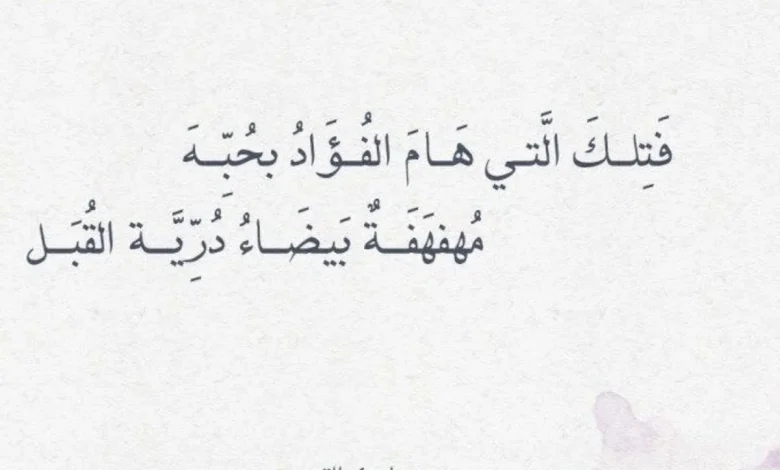 فَتِلكَ الَّتي هَامَ الفُؤَادُ بحُبِّهَ
مُهفهَفَةٌ بَيضَاءُ دُرِّيَّة القُبَل